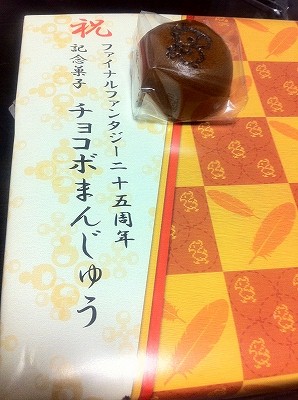 祝
ファイナルファンタジー二十五周年
記念菓子
チョコボまんじゅう